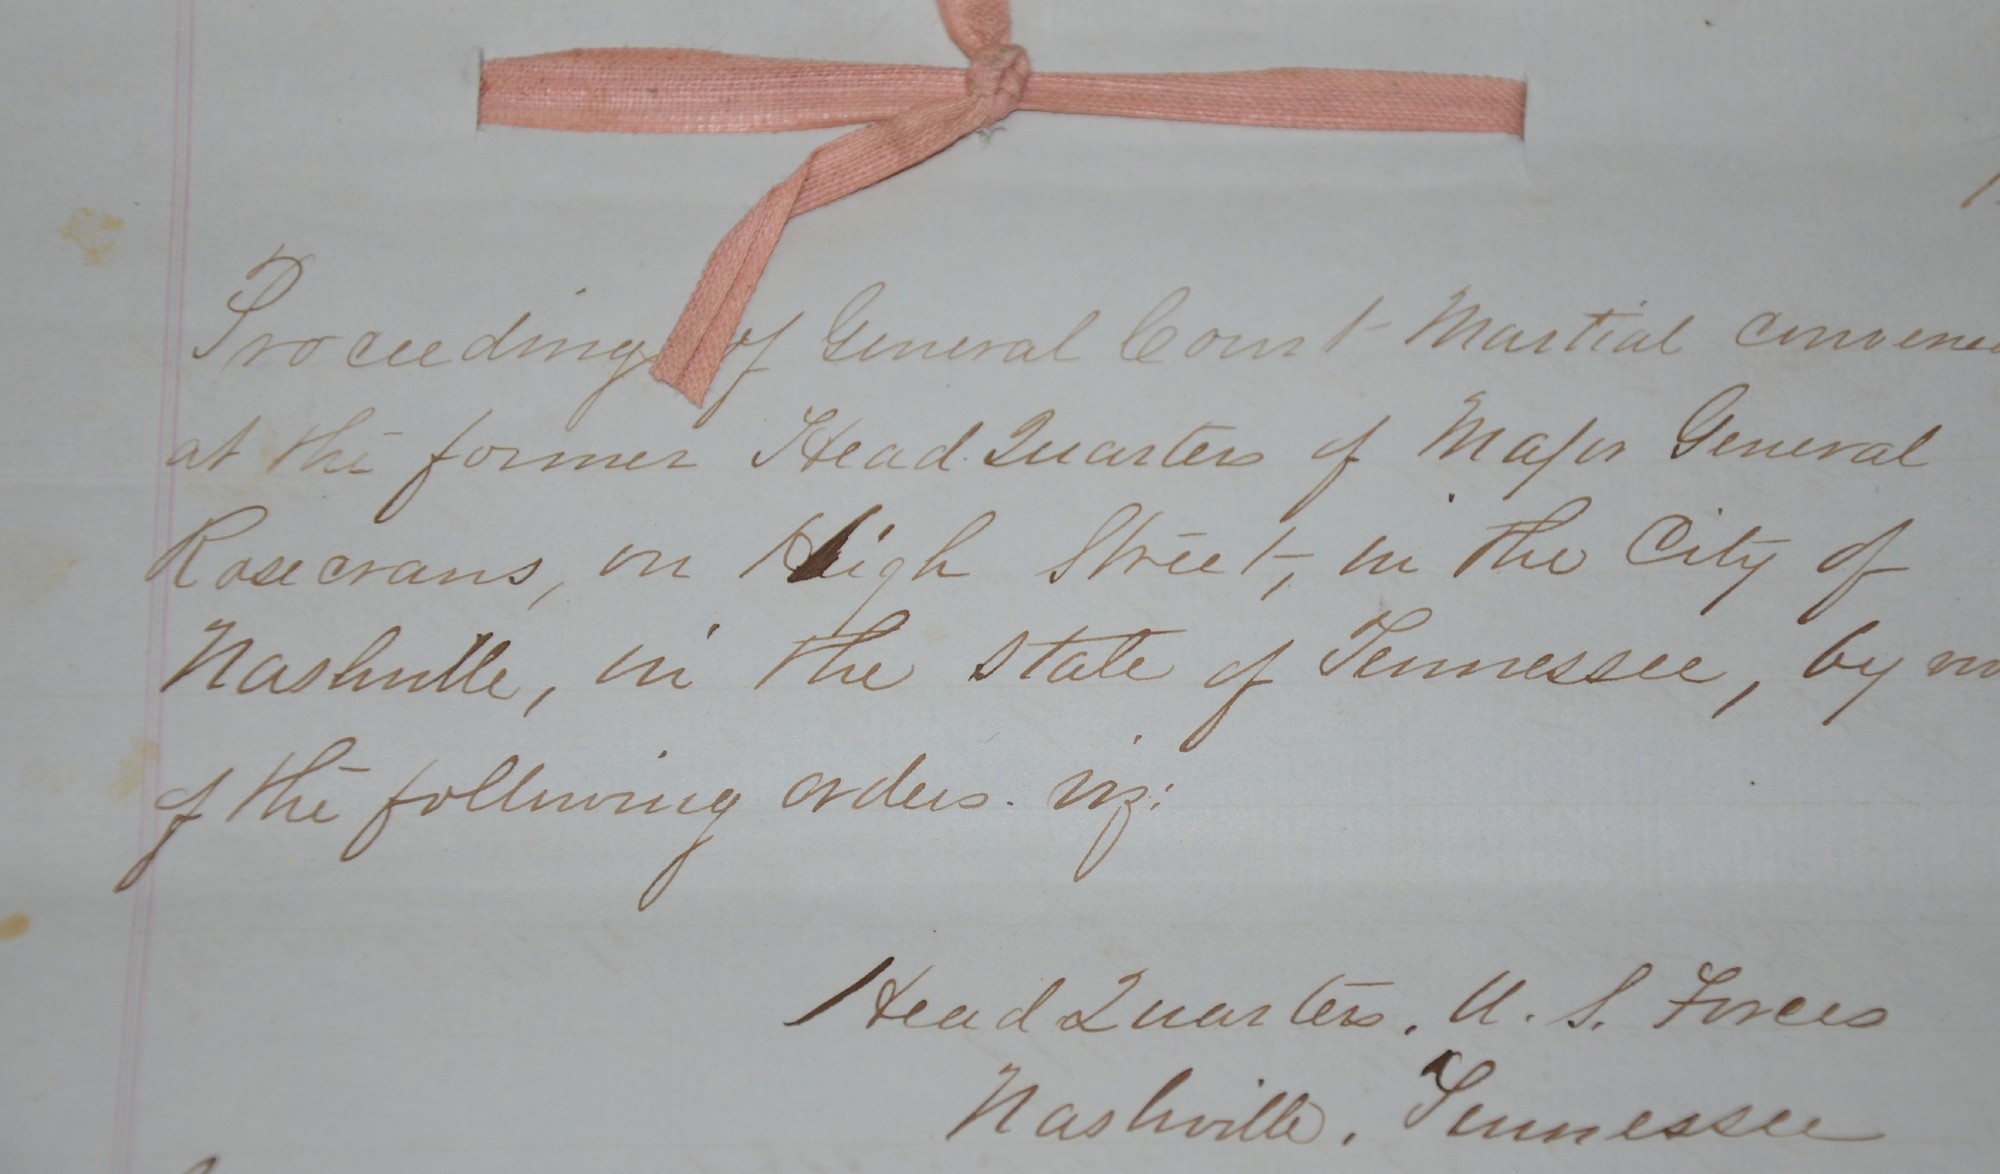 Proceedings of General Court Martial convened
at the former Head Quarters of Major General
Rosecrans, on High Street, in the City of
Nashville, in the State of Tennessee, by
of the following orders. viz:
Head Quarters, U. S. Forces
Nashville, Tennessee